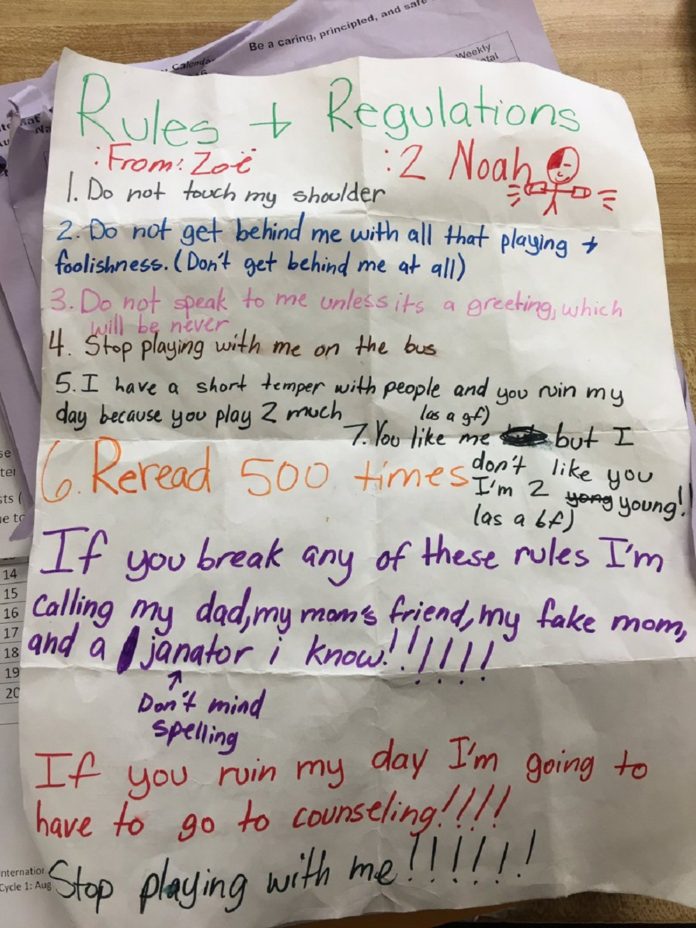 Be a caring, principled, and safe
Weekly
Calenda
Rules + Regulations
:From: Zoë :2 Noah
1. Do not touch my shoulder
2. Do not get behind me with all that playing +
foolishness. (Don't get behind me at all)
3. Do not speak to me unless its a greeting, which
will be never
4. Stop playing with me on the bus
5. I have a short temper with people and you ruin my
day because you play 2 much
(as a gf)
7. You like me but I
don't like you
I'm 2 yong young!!
(as a bf)
6. Reread 500 times
If you break any of these rules I'm
calling my dad, my mom's friend, my fake mom,
and a janator i know!!!!!!!
Don't mind
spelling
If you ruin my day I'm going to
have to go to counseling!!!!
Stop playing with me!!!!!!!
14
15
16
17
18
19
20
Cycle 1: Aug